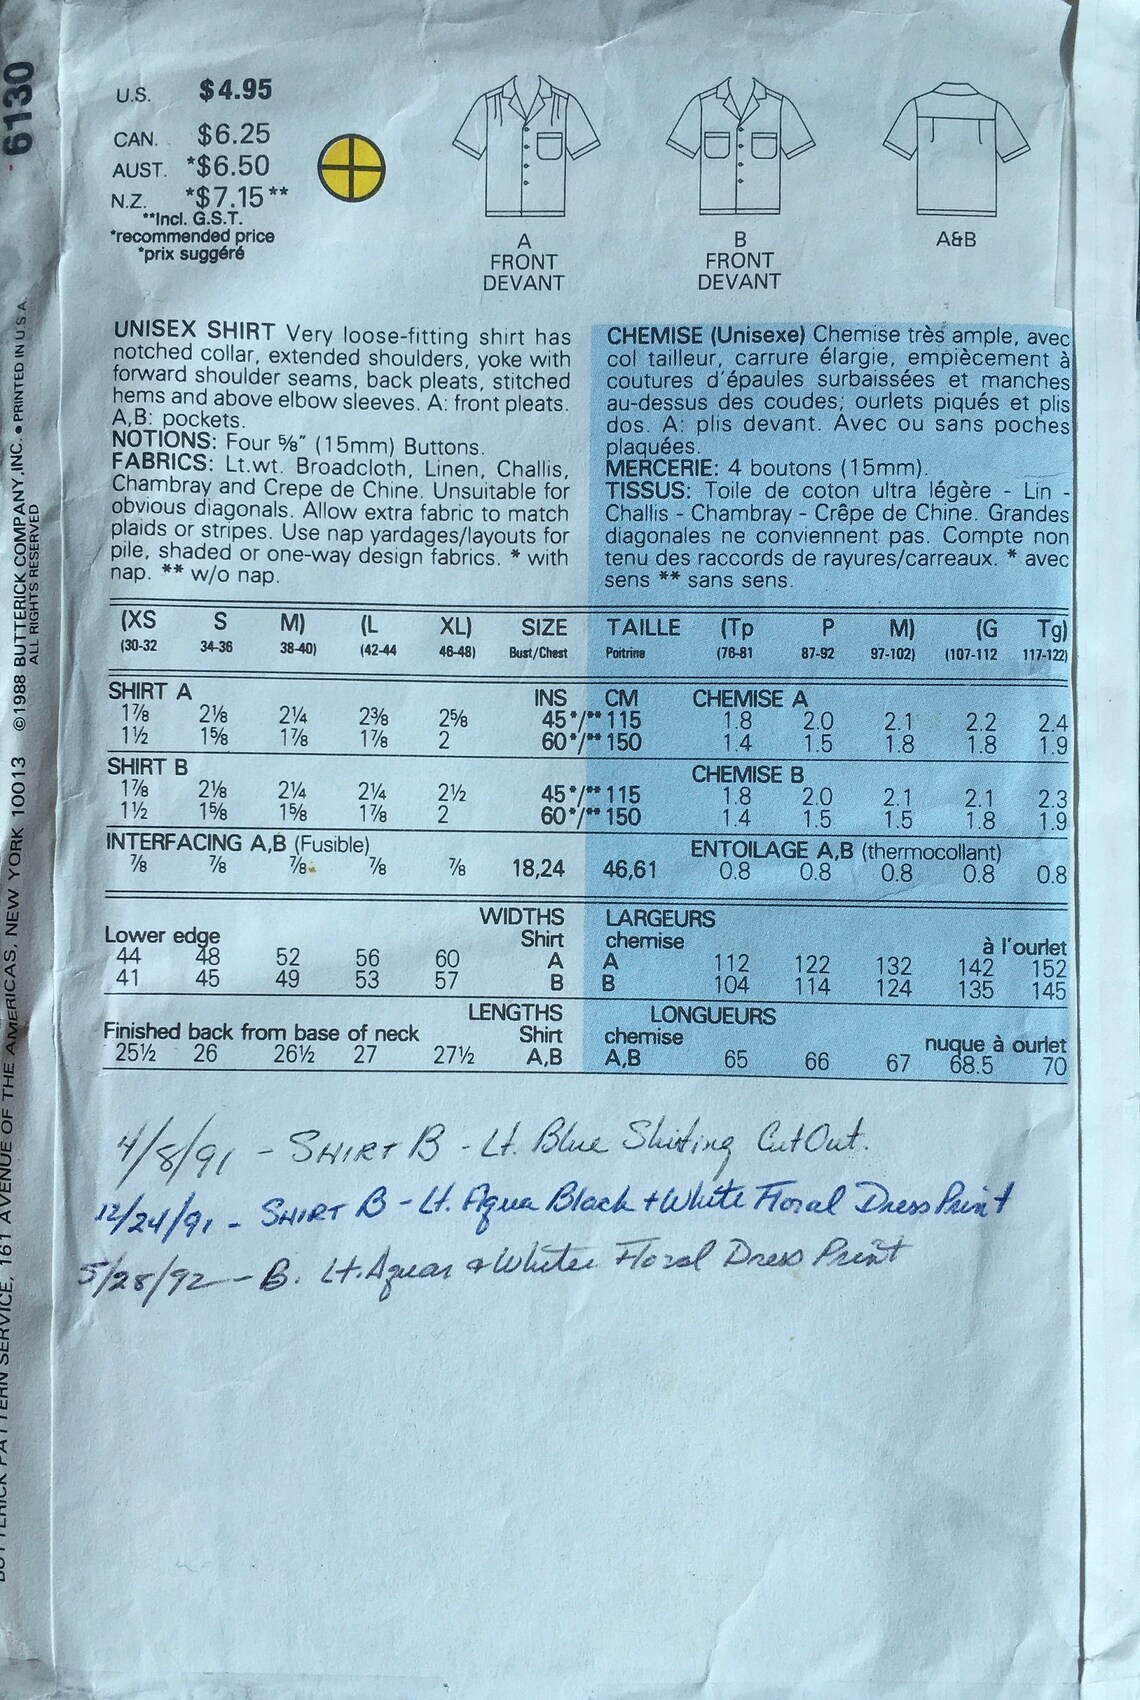 6130
U.S. $4.95
CAN. $6.25
AUST. *$6.50
N.Z. *$7.15**
**Incl. G.S.T.
*recommended price
*prix suggéré
A
FRONT
DEVANT
B
FRONT
DEVANT
A&B
UNISEX SHIRT Very loose-fitting shirt has
notched collar, extended shoulders, yoke with
forward shoulder seams, back pleats, stitched
hems and above elbow sleeves. A: front pleats.
A,B: pockets.
NOTIONS: Four ⅝" (15mm) Buttons.
FABRICS: Lt.wt. Broadcloth, Linen, Challis,
Chambray and Crepe de Chine. Unsuitable for
obvious diagonals. Allow extra fabric to match
plaids or stripes. Use nap yardages/layouts for
pile, shaded or one-way design fabrics. * with
nap. ** w/o nap.
CHEMISE (Unisexe) Chemise très ample, avec
col tailleur, carrure élargie, empiècement à
coutures d'épaules surbaissées et manches
au-dessus des coudes; ourlets piqués et plis
dos. A: plis devant. Avec ou sans poches
plaquées.
MERCERIE: 4 boutons (15mm).
TISSUS: Toile de coton ultra légère - Lin -
Challis - Chambray - Crêpe de Chine. Grandes
diagonales ne conviennent pas. Compte non
tenu des raccords de rayures/carreaux. * avec
sens ** sans sens.
(XS S M) (L XL) SIZE TAILLE (Tp P M) (G Tg)
(30-32 34-36 38-40) (42-44 46-48) Bust/Chest Poitrine (76-81 87-92 97-102) (107-112 117-122)
SHIRT A INS CM CHEMISE A
1⅞ 2⅛ 2¼ 2⅜ 2⅝ 45*/** 115 1.8 2.0 2.1 2.2 2.4
1½ 1⅝ 1⅞ 1⅞ 2 60*/** 150 1.4 1.5 1.8 1.8 1.9
SHIRT B CHEMISE B
1⅞ 2⅛ 2¼ 2¼ 2½ 45*/** 115 1.8 2.0 2.1 2.1 2.3
1½ 1⅝ 1⅝ 1⅞ 2 60*/** 150 1.4 1.5 1.5 1.8 1.9
INTERFACING A,B (Fusible) ENTOILAGE A,B (thermocollant)
⅞ ⅞ ⅞ ⅞ ⅞ 18,24 46,61 0.8 0.8 0.8 0.8 0.8
WIDTHS LARGEURS
Lower edge Shirt chemise à l'ourlet
44 48 52 56 60 A A 112 122 132 142 152
41 45 49 53 57 B B 104 114 124 135 145
LENGTHS LONGUEURS
Finished back from base of neck Shirt chemise nuque à ourlet
25½ 26 26½ 27 27½ A,B A,B 65 66 67 68.5 70
4/8/91 - SHIRT B - Lt. Blue Shirting Cut Out.
12/24/91 - SHIRT B - Lt. Aqua Black + White Floral Dress Print
5/28/92 - B. Lt. Aqua + White Floral Dress Print
BUTTERICK PATTERN SERVICE, 161 AVENUE OF THE AMERICAS, NEW YORK 10013 ©1988 BUTTERICK COMPANY, INC. • PRINTED IN U.S.A.
ALL RIGHTS RESERVED